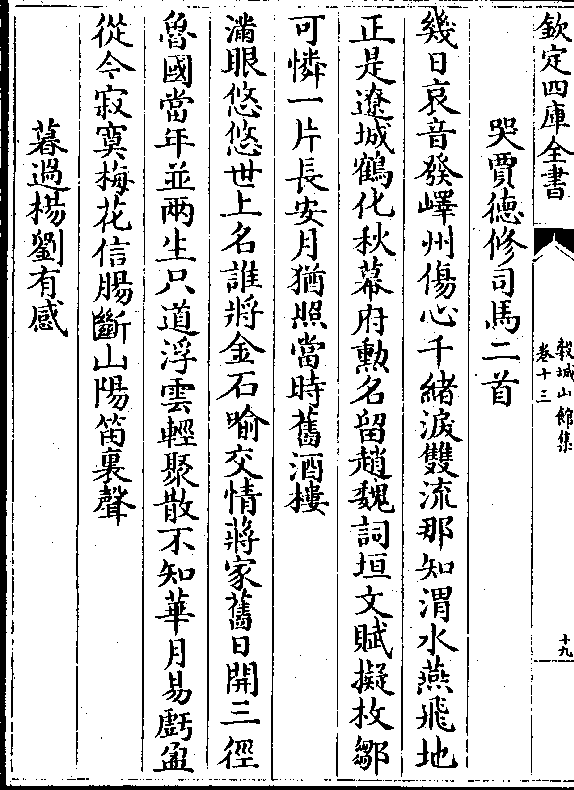 欽定四庫全書
穀城山館集
卷十三
十九
哭賈德修司馬二首
幾日哀音發嶧州傷心千緒淚雙流那知渭水燕飛地
正是遼城鶴化秋幕府勲名留趙魏詞垣文賦擬枚鄒
可憐一片長安月猶照當時舊酒樓
滿眼悠悠世上名誰將金石喻交情蔣家舊日開三徑
魯國當年並兩生只道浮雲輕聚散不知華月易虧盈
從今寂寞梅花信腸斷山陽笛裏聲
暮過楊劉有感